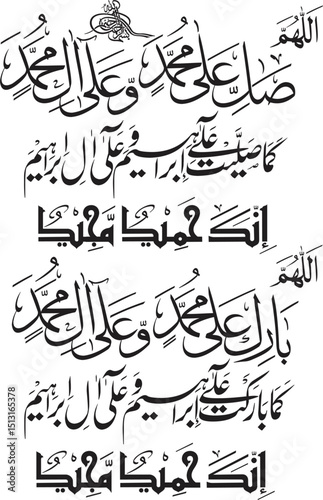 اللهم
صل على محمد وعلى آل محمد
كما صليت على إبراهيم وعلى آل إبراهيم
إنك حميد مجيد
اللهم
بارك على محمد وعلى آل محمد
كما باركت على إبراهيم وعلى آل إبراهيم
إنك حميد مجيد
Adobe Stock | #1513165378